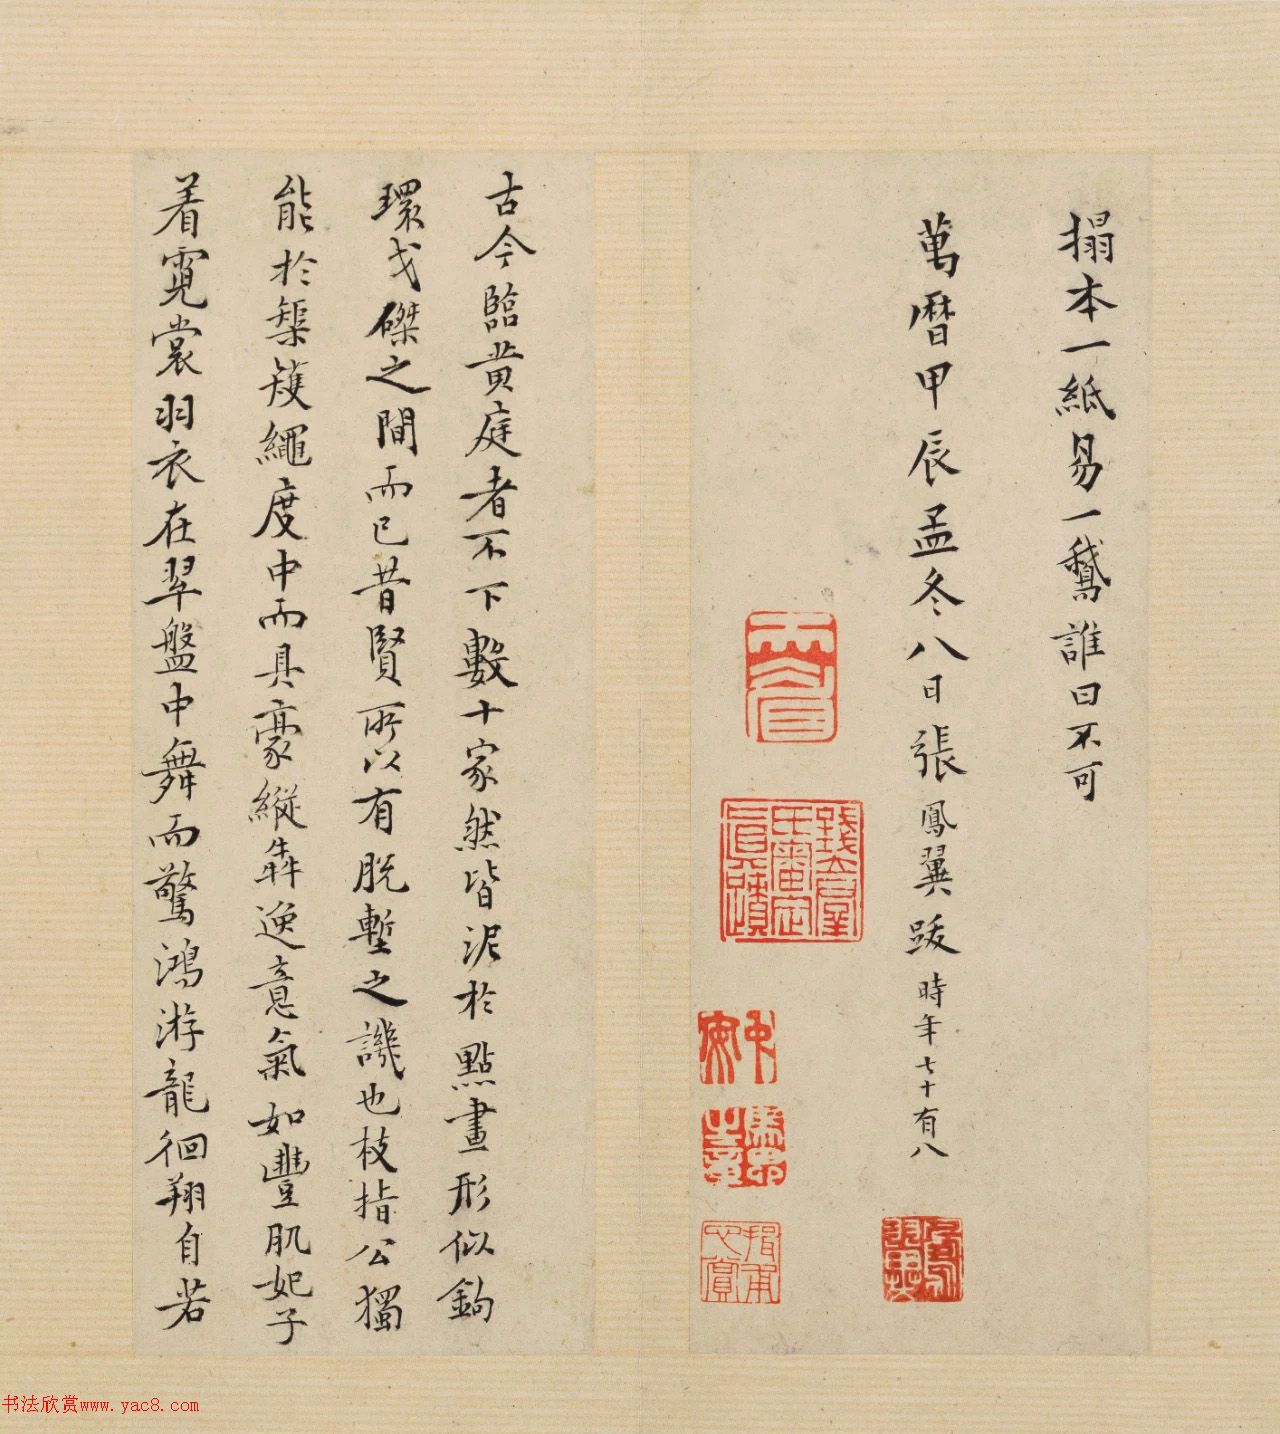 搨本一紙易一鵞誰曰不可
萬曆甲辰孟冬八日張鳳翼跋時年七十有八
古今臨黄庭者不下數十家然皆泥於點畫形似鉤
環戈磔之間而已昔賢所以有脫塹之譏也枝指公獨
能於榘矱繩度中而具豪縱犇逸意氣如豐肌妃子
着霓裳羽衣在翠盤中舞而驚鴻游龍徊翔自若
錢大昕氏審定真蹟
书法欣赏www.yac8.com